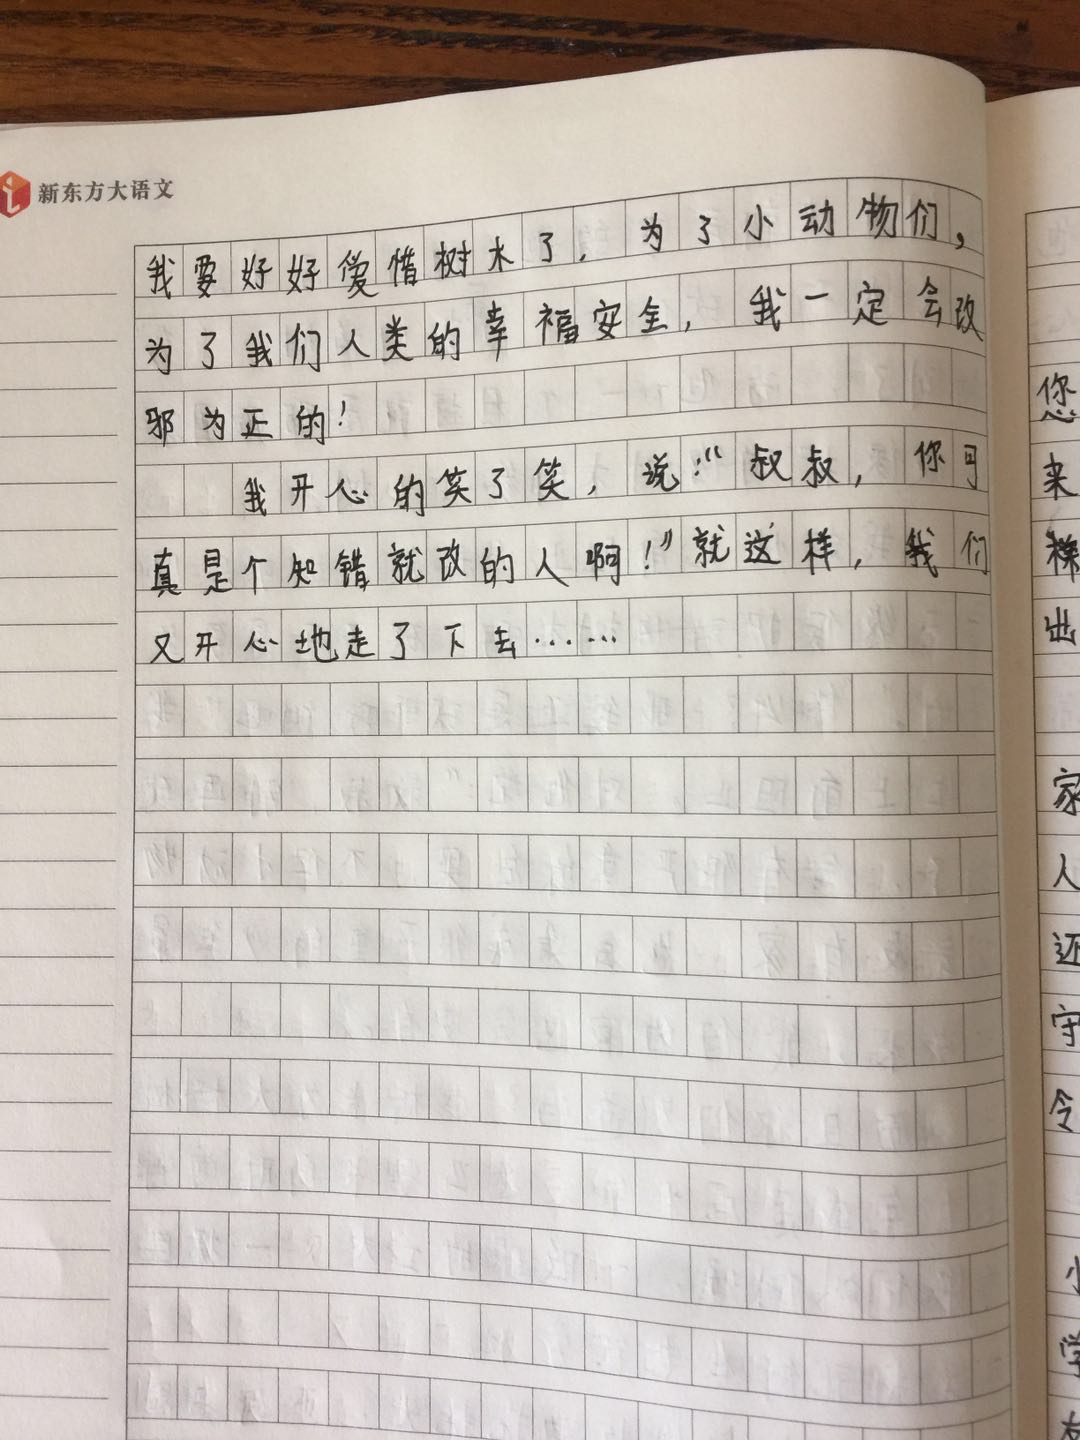 新东方大语文
我要好好爱惜树木了，为了小动物们，
为了我们人类的幸福安全，我一定会改
邪为正的！
我开心的笑了笑，说：“叔叔，你可
真是个知错就改的人啊！”就这样，我们
又开心地走了下去……
您
来
样
出
家
人
还
守
令
小
学